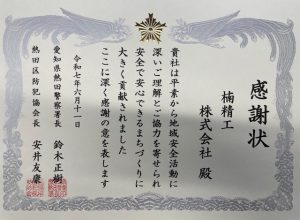 感謝状
楠精工
株式会社 殿
貴社は平素から地域安全活動に
深いご理解とご協力を寄せられ
安全で安心できるまちづくりに
大きく貢献されました
ここに深く感謝の意を表します
令和七年六月十一日
愛知県熱田警察署長 鈴木正樹
熱田区防犯協会長 安井友康